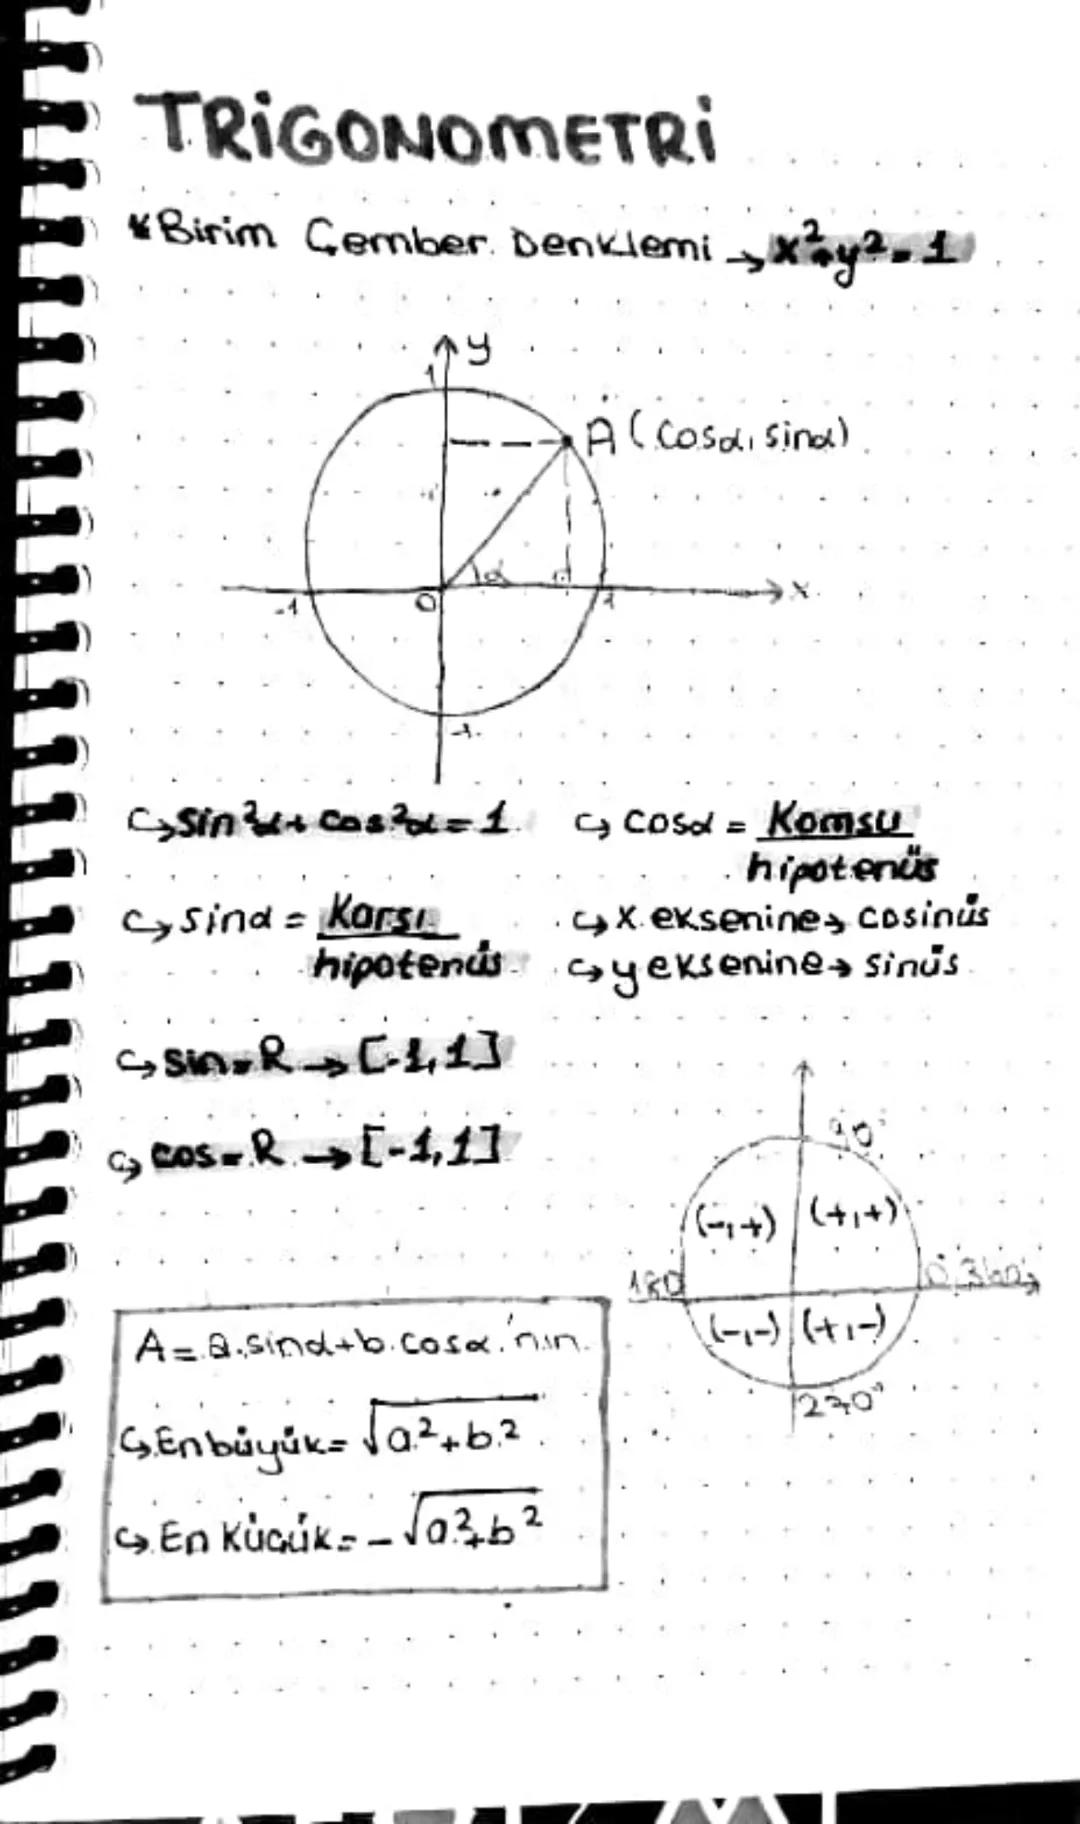 TRİGONOMETRİ
*Birim Çember Denklemi → x²+y²=1
y
1
A (cosα, sinα)
α
-1 0 1 x
-1
↪ sin²α + cos²α = 1
↪ cosα = Komsu
hipotenüs
↪ sinα = Karsı
hipotenüs
↪ x eksenine → cosinüs
↪ y eksenine → sinüs
↪ sin = R → [-1,1]
↪ cos = R → [-1,1]
90°
(-,+) (+,+)
180 0 360
(-,-) (+,-)
270°
A = a.sinα+b.cosα 'nın
↪ En büyük = √a²+b²
↪ En Küçük = -√a²+b²